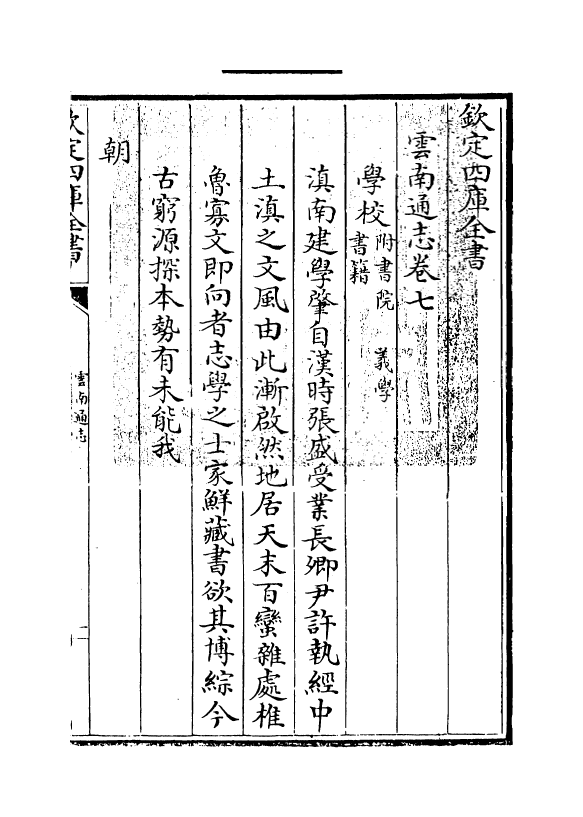 欽定四庫全書
雲南通志卷七
學校附書院 義學
書籍
滇南建學肇自漢時張盛受業長卿尹許執經中
土滇之文風由此漸啟然地居天末百蠻雜處椎
魯寡文即向者志學之士家鮮藏書欲其博綜今
古窮源探本勢有未能我
朝
欽定四庫全書
雲南通志
一